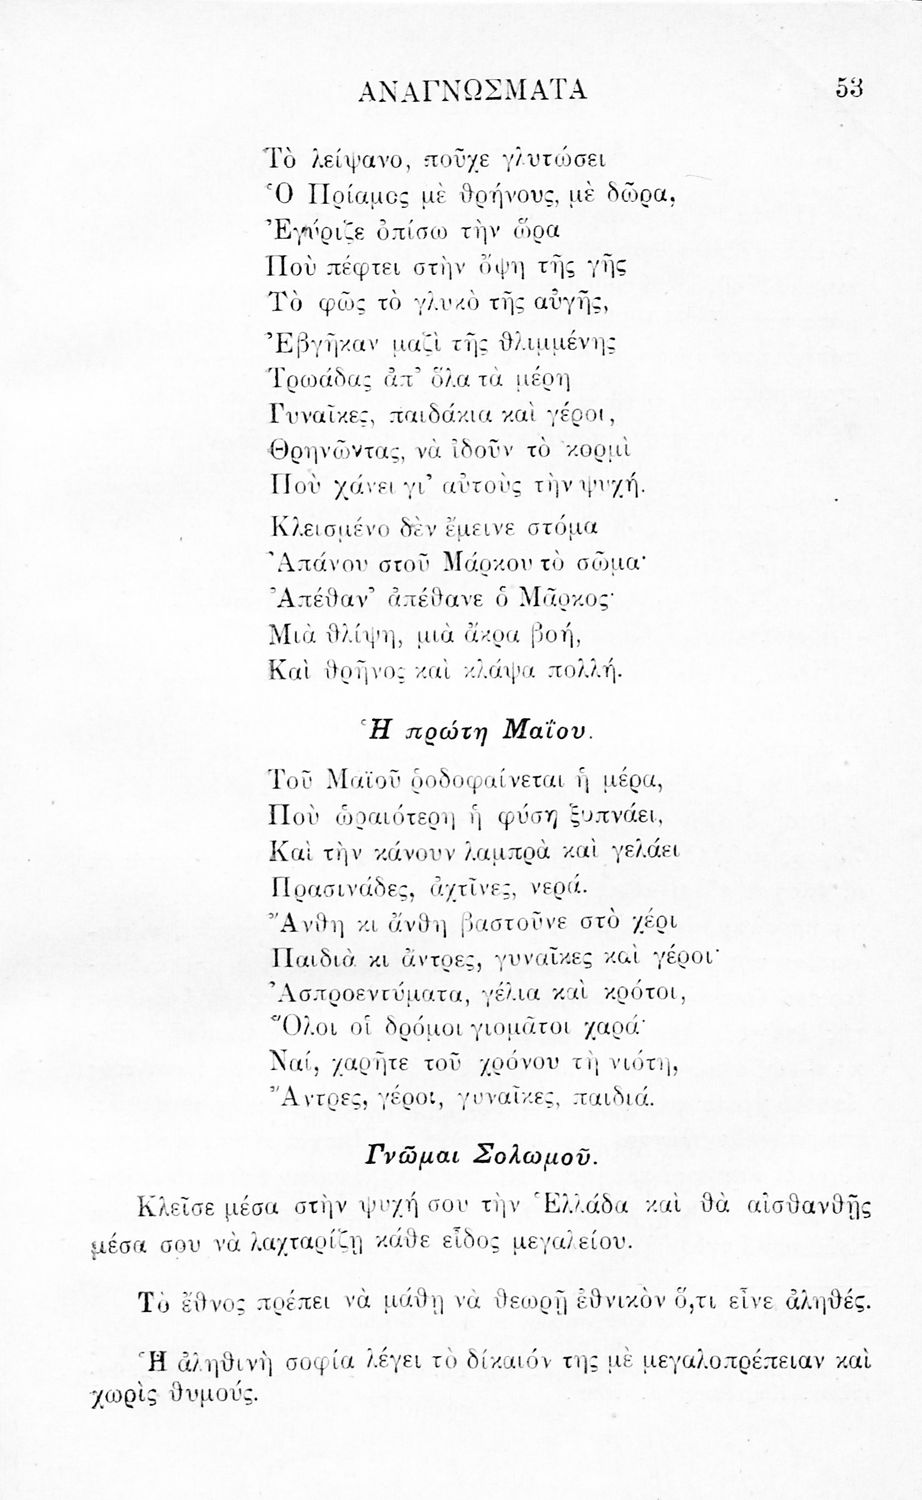 ΑΝΑΓΝΩΣΜΑΤΑ 53
Τὸ λείψανο, ποὖχε γλυτώσει
Ὁ Πρίαμος μὲ θρήνους, μὲ δῶρα,
Ἐγύριζε ὀπίσω τὴν ὥρα
Ποὺ πέφτει στὴν ὄψη τῆς γῆς
Τὸ φῶς τὸ γλυκὸ τῆς αὐγῆς,
Ἐβγῆκαν μαζὶ τῆς θλιμμένης
Τρωάδας ἀπ' ὅλα τὰ μέρη
Γυναῖκες, παιδάκια καὶ γέροι,
Θρηνῶντας, νὰ ἰδοῦν τὸ κορμὶ
Ποὺ χάνει γι' αὐτοὺς τὴν ψυχή.
Κλεισμένο δὲν ἔμεινε στόμα
Ἀπάνου στοῦ Μάρκου τὸ σῶμα·
Ἀπέθαν' ἀπέθανε ὁ Μᾶρκος·
Μιὰ θλίψη, μιὰ ἄκρα βοή,
Καὶ θρῆνος καὶ κλάψα πολλή.
Ἡ πρώτη Μαΐου.
Τοῦ Μαϊοῦ ῥοδοφαίνεται ἡ μέρα,
Ποὺ ὡραιότερη ἡ φύση ξυπνάει,
Καὶ τὴν κάνουν λαμπρὰ καὶ γελάει
Πρασινάδες, ἀχτῖνες, νερά.
Ἄνθη κι ἄνθη βαστοῦνε στὸ χέρι
Παιδιὰ κι ἄντρες, γυναῖκες καὶ γέροι·
Ἀσπροεντύματα, γέλια καὶ κρότοι,
Ὅλοι οἱ δρόμοι γιομᾶτοι χαρά·
Ναί, χαρῆτε τοῦ χρόνου τὴ νιότη,
Ἄντρες, γέροι, γυναῖκες, παιδιά.
Γνῶμαι Σολωμοῦ.
Κλεῖσε μέσα στὴν ψυχή σου τὴν Ἑλλάδα καὶ θὰ αἰσθανθῇς
μέσα σου νὰ λαχταρίζῃ κάθε εἶδος μεγαλείου.
Τὸ ἔθνος πρέπει νὰ μάθῃ νὰ θεωρῇ ἐθνικὸν ὅ,τι εἶνε ἀληθές.
Ἡ ἀληθινὴ σοφία λέγει τὸ δίκαιόν της μὲ μεγαλοπρέπειαν καὶ
χωρὶς θυμούς.